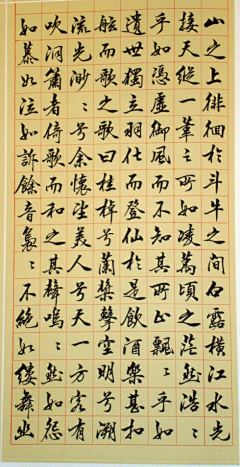 山之上徘徊於斗牛之間白露橫江水光
接天縱一葦之所如凌萬頃之茫然浩々
乎如憑虛御風而不知其所止飄々乎如
遺世獨立羽化而登仙於是飲酒樂甚扣
舷而歌之歌曰桂棹兮蘭槳擊空明兮溯
流光渺々兮余懷望美人兮天一方客有
吹洞簫者倚歌而和之其聲嗚々然如怨
如慕如泣如訴餘音裊々不絕如縷舞幽